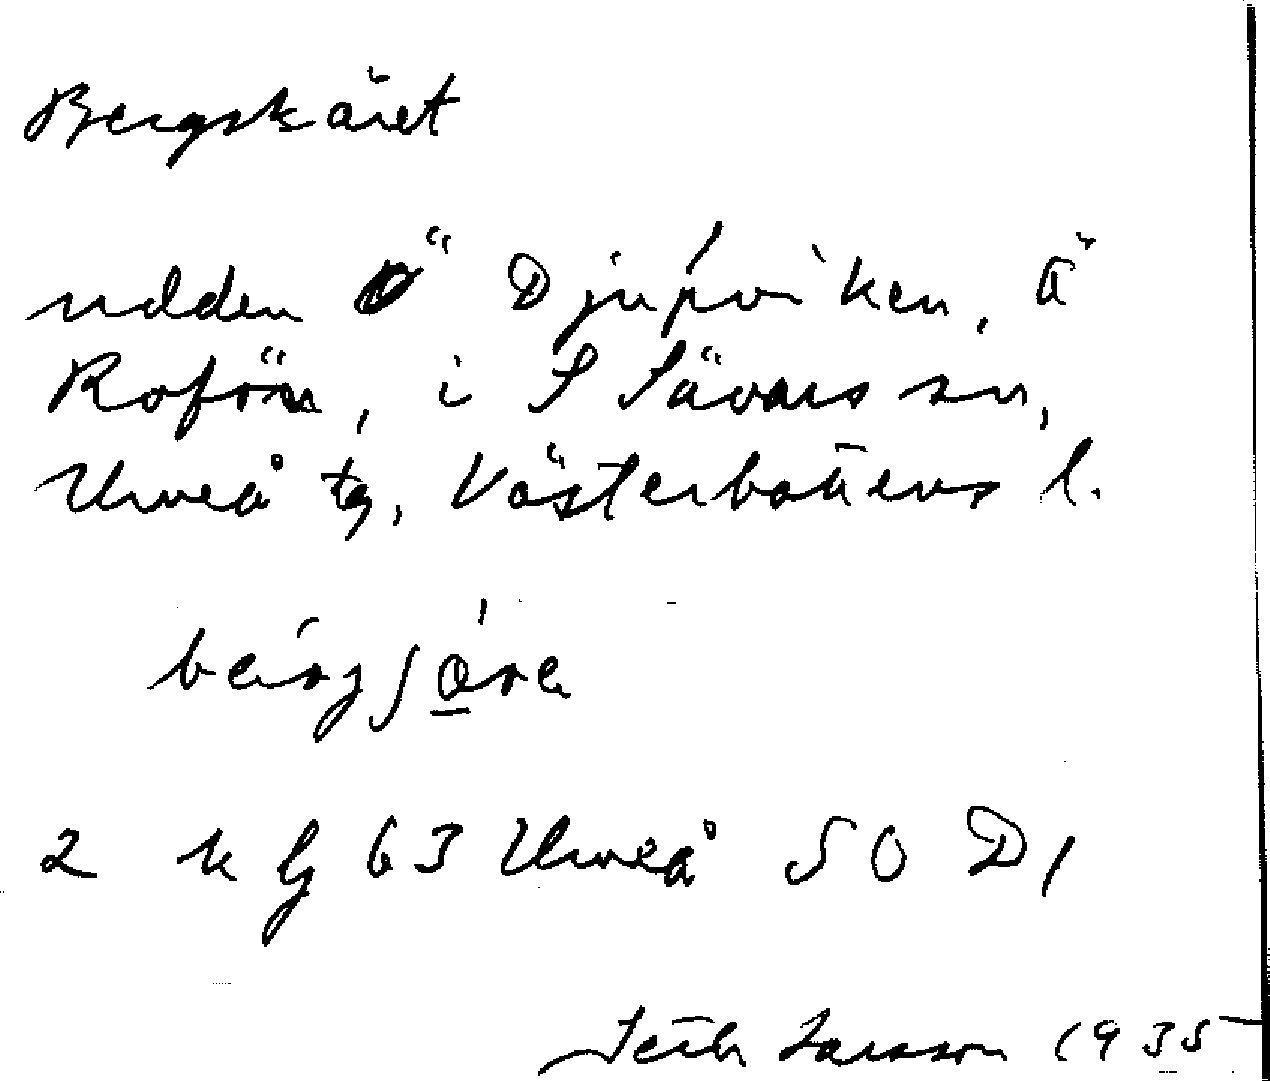 Bergskäret
udden Ö Djupviken, å
Rofön, i S Sävars sn,
Umeå tg, Västerbottens l.
2 kg 63 Umeå 50 D1
Larsson 1935